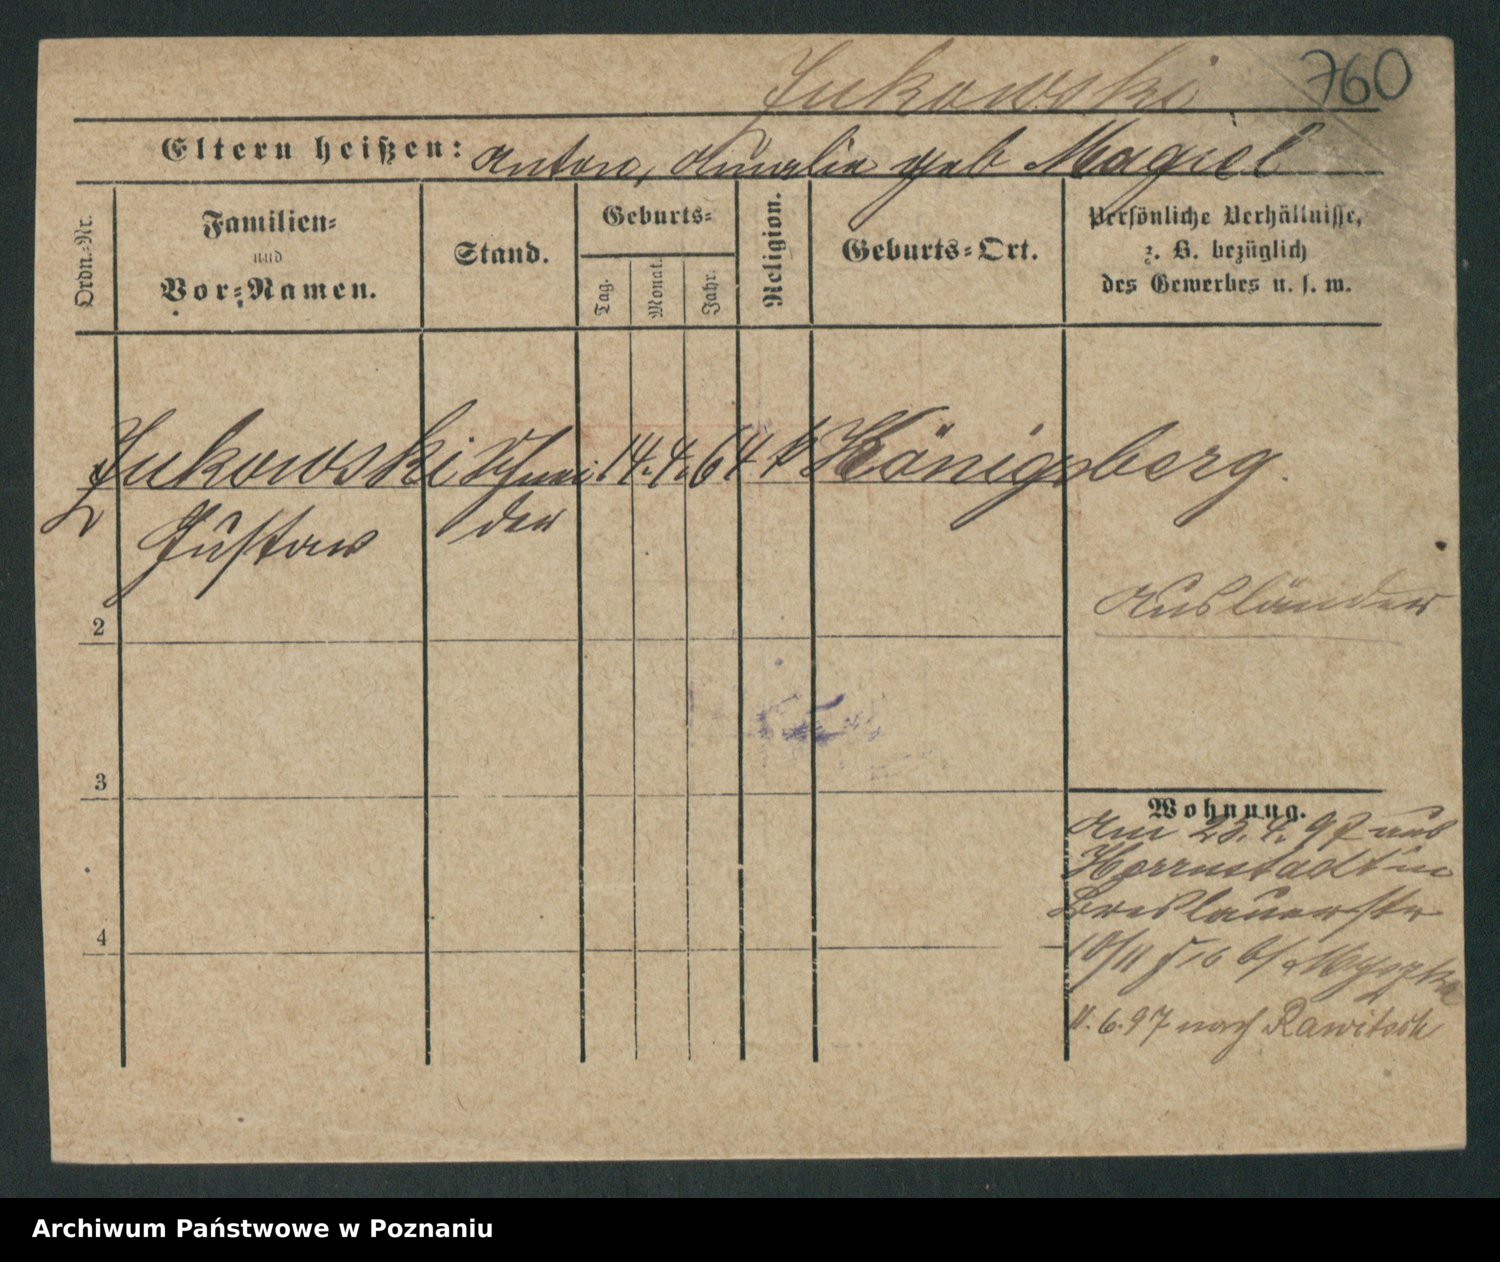 Jukowski
760
Eltern heißen: Anton, Amalie geb Magiel
Ordn.-Nr.
Familien-
und
Vor-Namen.
Stand.
Geburts-
Tag.
Monat.
Jahr.
Religion.
Geburts-Ort.
Persönliche Verhältnisse,
z. B. bezüglich
des Gewerbes u. s. w.
Jukowski Schnei 14. 4. 64 k Königsberg.
Gustav der
Ausländer
2
3
4
Wohnung.
Am 23. 4. 97 aus
Herrnstadt in
Breslauerstr
10/11 b/
11. 6. 97 nach Rawitsch
Archiwum Państwowe w Poznaniu